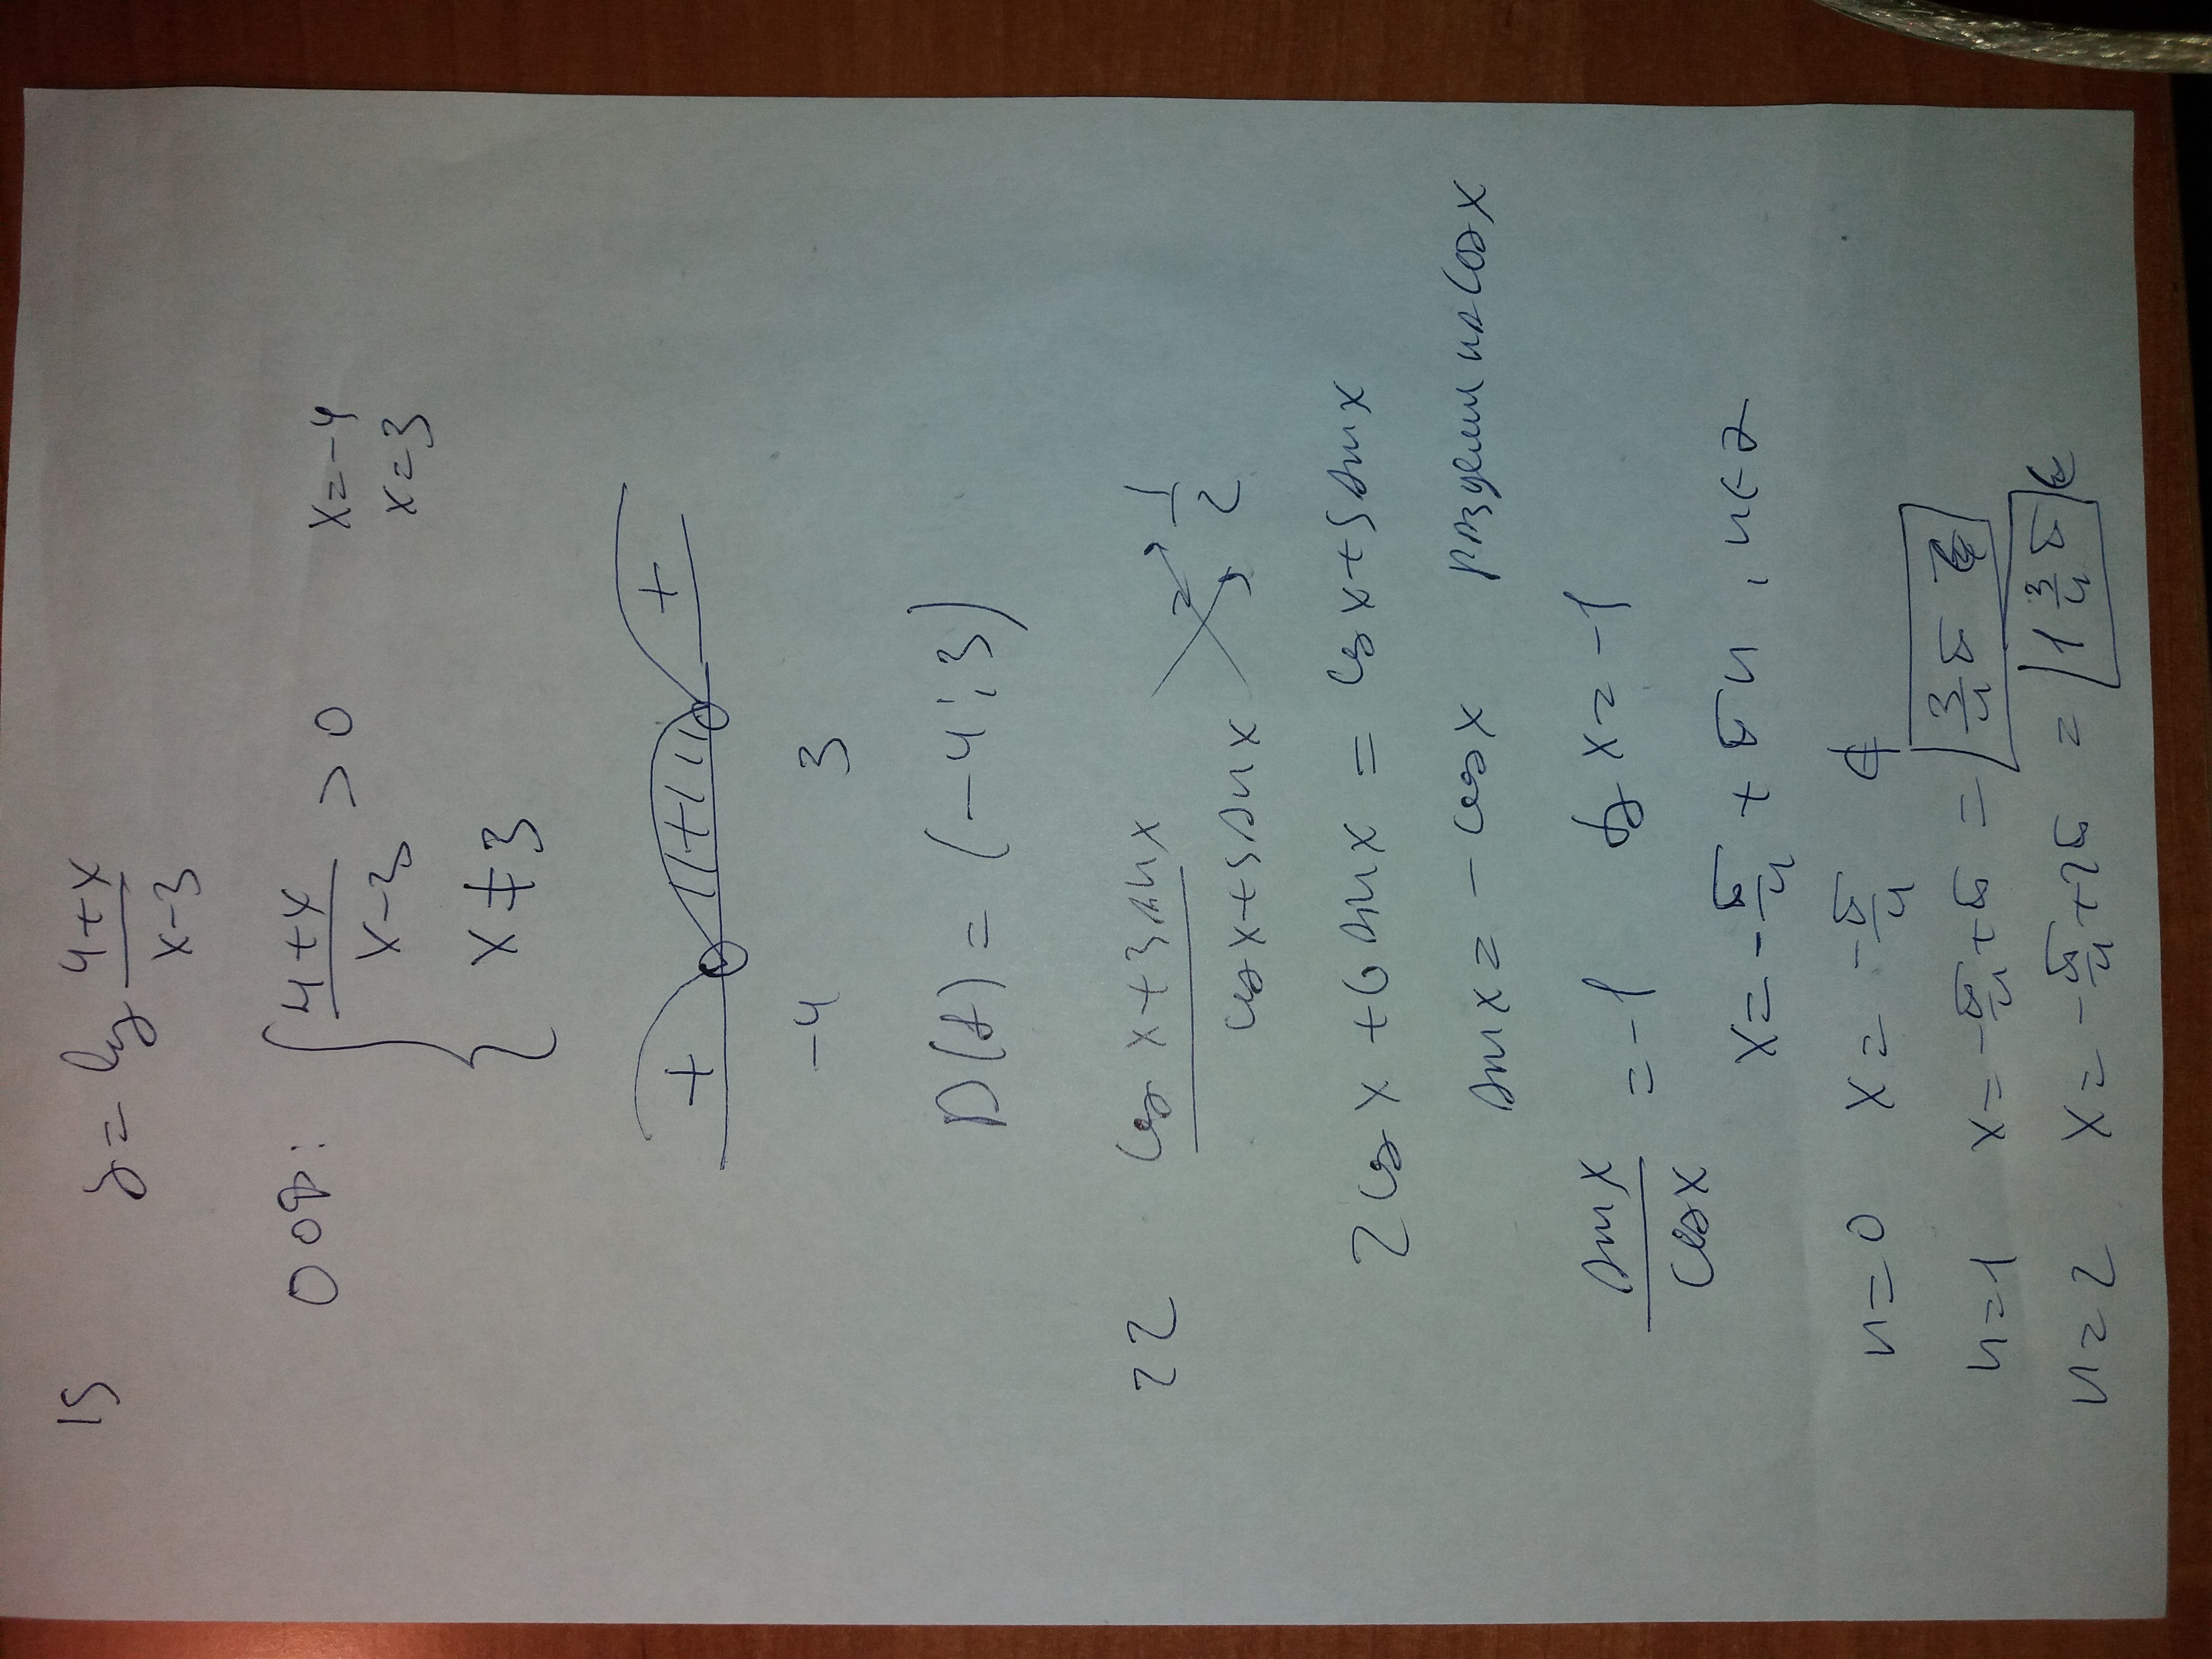 15 y = lg (4+x)/(x-3)
ООФ: { (4+x)/(x-3) > 0 x = -4
x ≠ 3 x = 3
+ + +
-4 3
D(f) = (-4; 3)
22 (cos x + 3 sin x)/(cos x + 5 sin x) = 1/2
2 cos x + 6 sin x = cos x + 5 sin x
sin x = - cos x разделим на cos x
sin x / cos x = -1 tg x = -1
x = - π/4 + πn, n ∈ Z
n = 0 x = - π/4 ∉
n = 1 x = - π/4 + π = 3/4 π ∈
n = 2 x = - π/4 + 2π = 1 3/4 π ∈